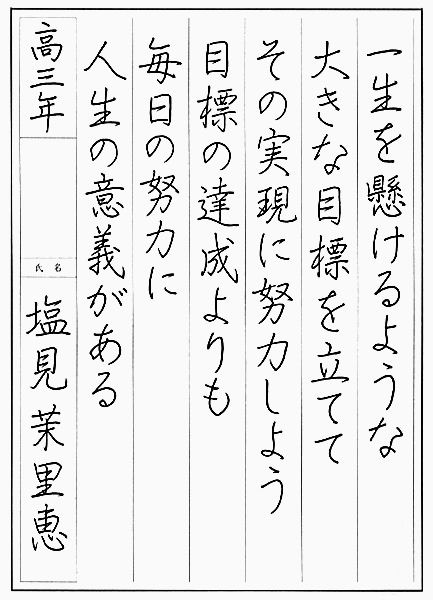 一生を懸けるような
大きな目標を立てて
その実現に努力しよう
目標の達成よりも
毎日の努力に
人生の意義がある
高三年
氏名
塩見茉里恵